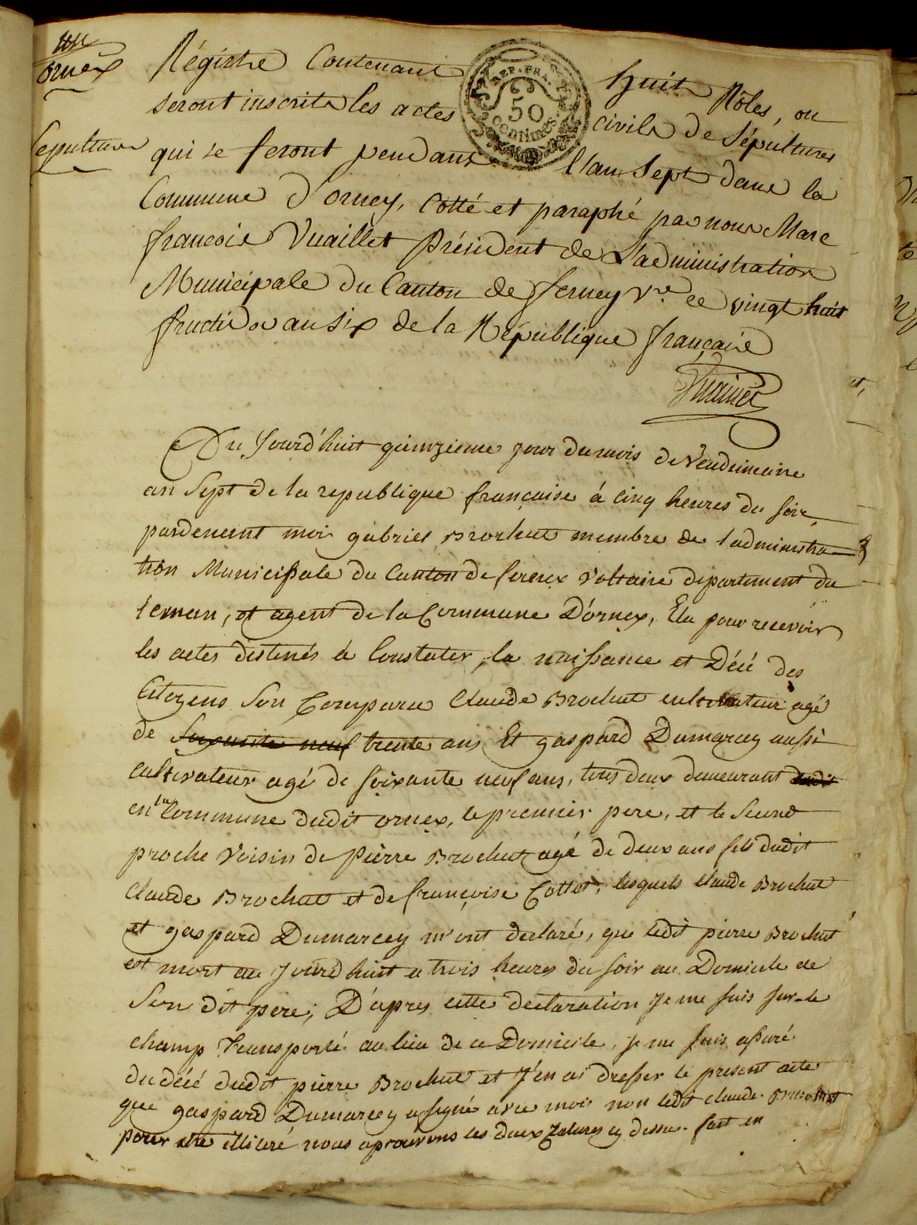 ornex
Sepultures
Régistre Contenant huit Rôles, ou
seront inscrits les actes civils de Sépultures
REP. FRA.
50
centimes.
qui se feront pendant l'an Sept dans la
Commune d'ornex, Cotté et paraphé par nous Marc
françois Vuaillet Président de L'administration
Municipale du Canton de ferney Vre ce vingt huit
fructidor an six de la République française
Vuaillet
Du Jourd'huit quinzieme jour du mois de Vendemiaire
an Sept de la republique française à cinq heures du soir,
pardevent moi gabriel Brochut membre de l'administra
tion Municipale du Canton de fernex Voltaire departement du
leman, et agent de la Commune D'ornex, Elu pour recevoir
les actes destinés à Constater, la naissance et Décé des
Citoyens Son Comparu Claude Brochut cultivateur agé
de Soixante neuf trente ans Et gaspard Dumarcey aussi
cultivateur agé de soixante neuf ans, tous deux demeurant dudit
en la Commune dudit ornex, le premier pere, et le Second
proche Voisin de pierre Brochut agé de deux ans fils dudit
Claude Brochut et de françoise Cottot, lesquels Claude Brochut
et gaspard Dumarcey m'ont declaré, que ledit pierre Brochut
est mort au Jourd huit a trois heures du soir au Domicile de
Son dit pere; D'apres cette declaration je me suis sur-le
champ transporté au lieu de ce Domicile, je me suis assuré
du décé dudit pierre Brochut et J'en ai dresser le present acte
que gaspard Dumarcey a signé avec moi non ledit claude Brochut
pour etre illiteré nous aprouvons les deux ratures cy dessu. fait en